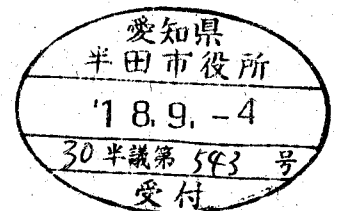 愛知県
半田市役所
'18.9.-4
30半議第543号
受付